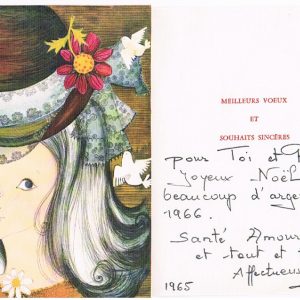 MEILLEURS VOEUX
ET
SOUHAITS SINCÈRES
pour Toi et
Joyeux Noël
beaucoup d'arge
1966.
Santé Amour
et tout et t
Affectueus
1965